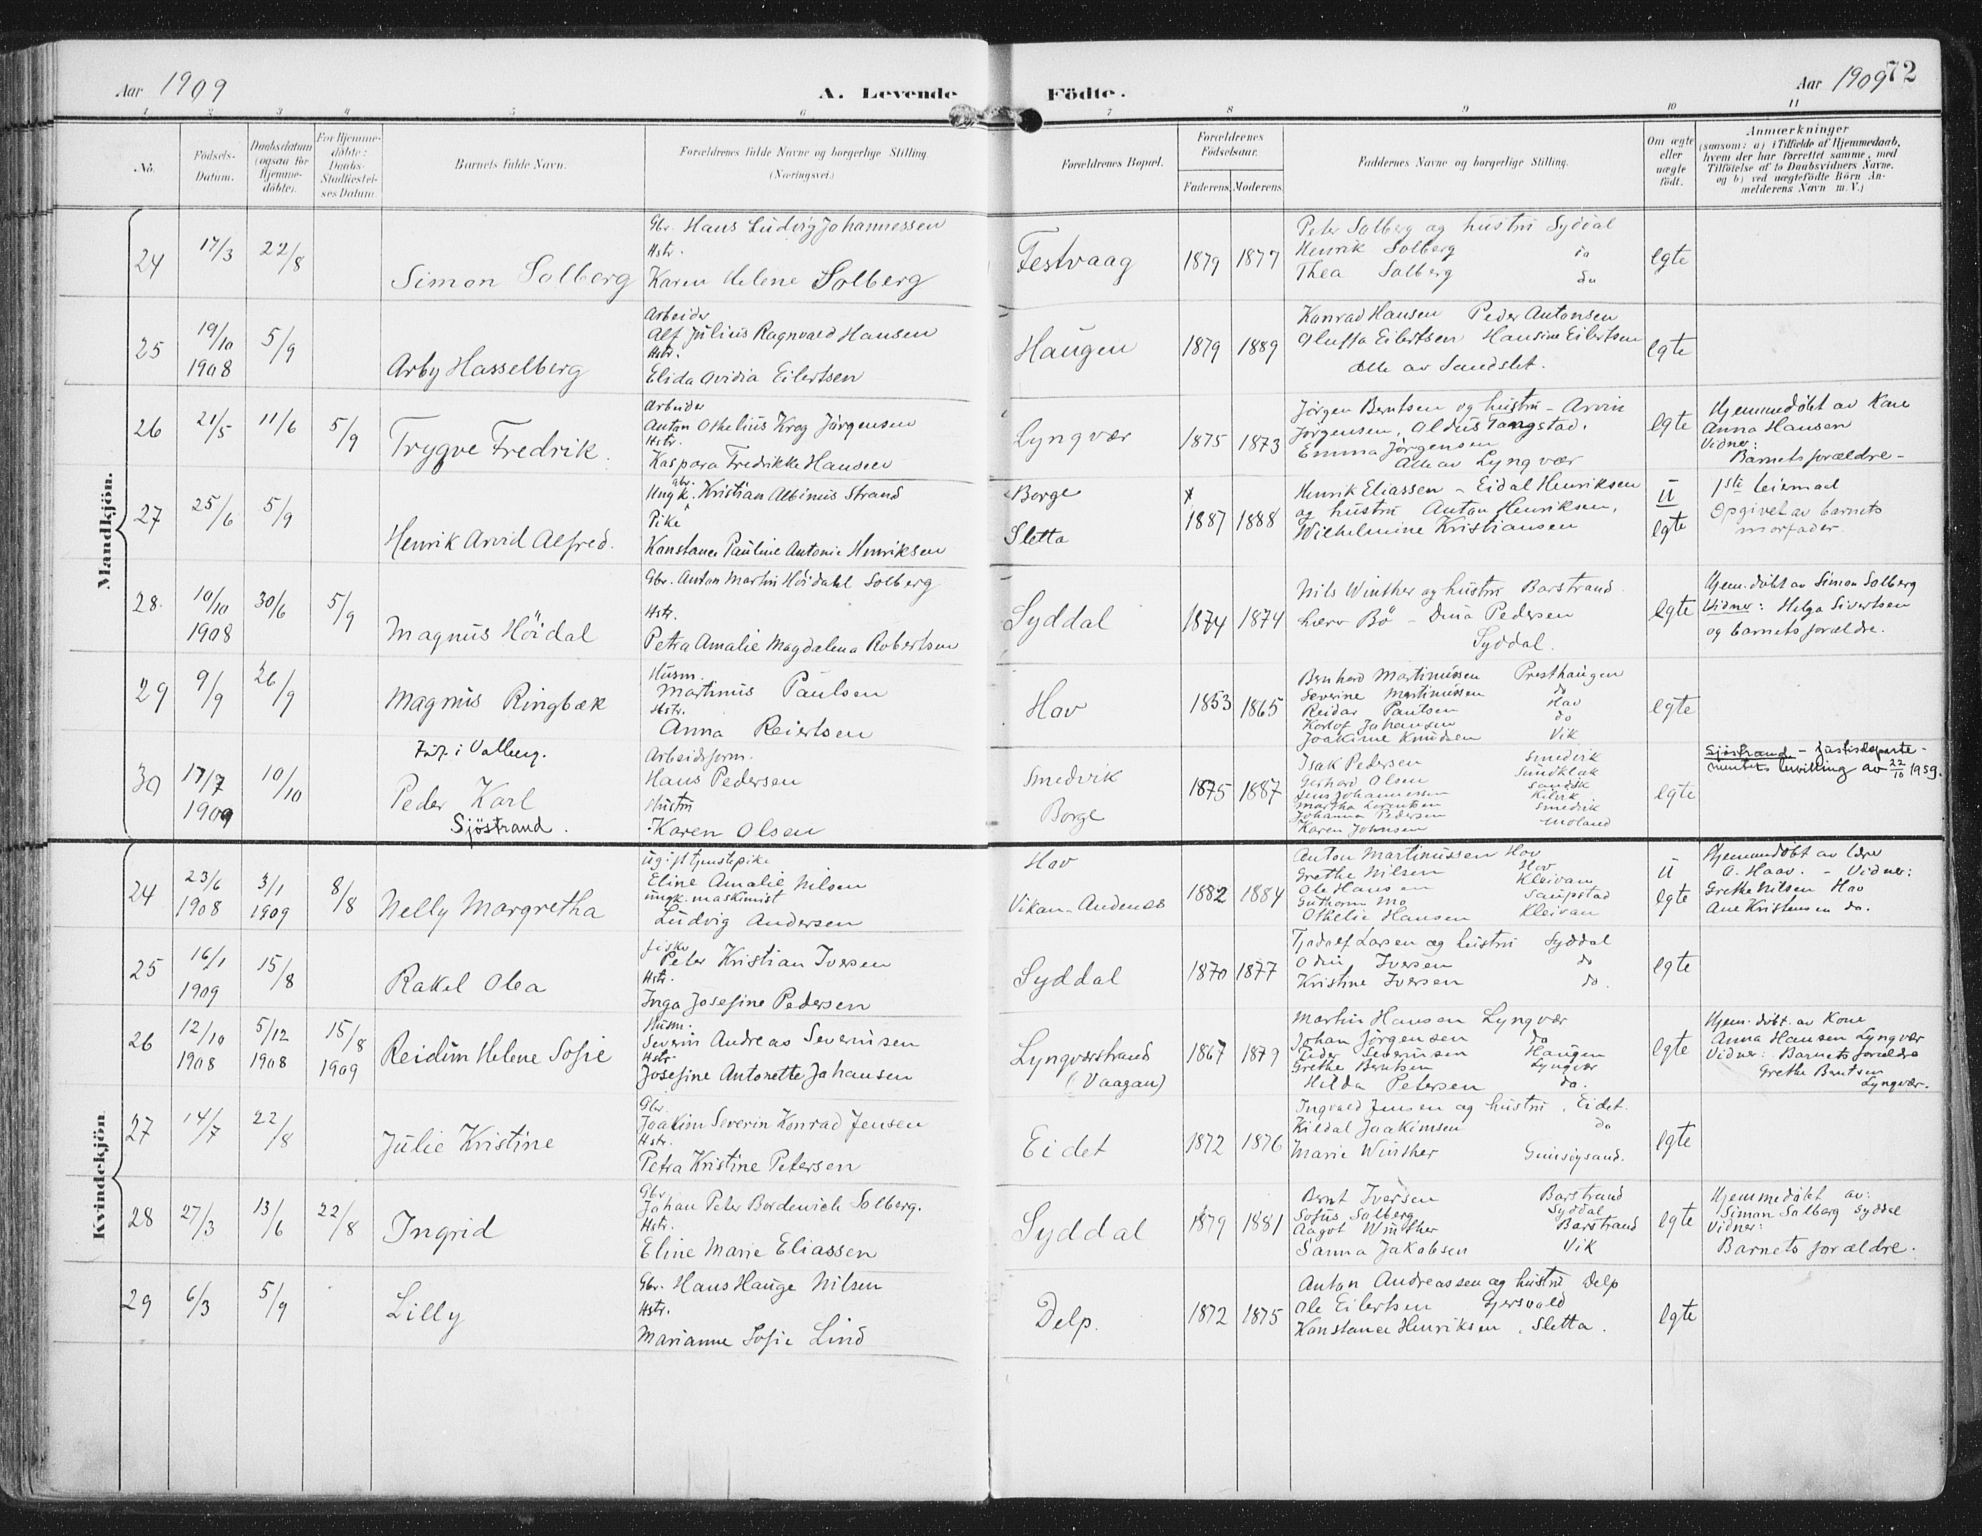 Aar 1909
A. Levende Födte.
Aar 1909 72
1 2 3 4 5 6 7 8 9 10 11
No.
Födsels-Datum.
Daabsdatum (ogsaa for Hjemmedöbte).
For Hjemmedöbte: Daabs-Stadfæstelses Datum.
Barnets fulde Navn.
Forældrenes fulde Navne og borgerlige Stilling
(Næringsvei.)
Forældrenes Bopæl.
Forældrenes Födselsaar.
Faderens Moderens
Faddernes Navne og borgerlige Stilling.
Om ægte eller uægte födt.
Anmærkninger
(saasom: a) i Tilfælde af Hjemmedaab,
hvem der har forrettet samme, med
Tilföielse af to Daabsvidners Navne,
og b) ved uægtefödte Börn Anmelderens Navn m. V.)
Mandkjön.
24 17/3 22/8 Simon Solberg
Gbr. Hans Ludvig Johannessen
Hstr.
Karen Helene Solberg
Festvaag 1879 1877
Peter Solberg og hustru Syddal
Henrik Solberg do
Thea Solberg do
egte
25 19/10 1908 5/9 Arby Hasselberg
Arbeider
Alf Julius Ragnvald Hansen
Hstr.
Elida Ovidia Eilertsen
Haugen 1879 1889
Konrad Hansen Peder Antonsen
Oluffa Eilertsen Hansine Eilertsen
Alle av Sandslet.
egte
26 21/5 11/6 5/9 Trygve Fredrik.
Arbeider
Anton Othelius Krog Jörgensen
Hstr.
Kaspara Fredrikke Hansen
Lyngvær 1875 1873
Jörgen Berntsen og hustru - Arvin
Jörgensen, Oldus Tangstad.
Emma Jörgensen
Alle av Lyngvær
egte
Hjemmedöbt av Kone
Anna Hansen
Vidner:
Barnets forældre -
27 25/6 5/9 Henrik Arvid Alfred.
Ungk. gbr. Kristian Albinus Strand
Pike
Konstance Pauline Antonie Henriksen
Borge
Sletta
x
1887 1888
Henrik Eliassen - Eidal Henriksen
og hustru Anton Henriksen,
Wilhelmine Kristiansen
u
egte
1ste leiermaal
Opgivet av barnets
morfader.
28. 10/10 1908 30/6 5/9 Magnus Höidal
Gbr. Anton Martin Höidahl Solberg
Hstr.
Petra Amalie Magdalena Robertsen
Syddal 1874 1874
Nils Winther og hustru Barstrand
Lærer Bö - Dina Pedersen
Syddal.
egte
Hjem.döbt av Simon Solberg
Vidner: Helga Sivertsen
og barnets forældre.
29 9/9 26/9 Magnus Ringbæk
Husm.
Martinus Paulsen
Hstr.
Anna Reiertsen
Hov 1853 1865
Bernhard Martinussen Presthaugen
Severine Martinussen do
Reidar Paulsen Hov
Johansen do
Joakime Knudsen Vik
egte
30 17/7 1909 10/10
Föd. i Valberg.
Peder Karl
Sjöstrand.
Arbeidsform.
Hans Pedersen
Hustru
Karen Olsen
Smedvik
Borge
1875 1887
Isak Pedersen Smedvik
Gerhard Olsen Sundklak
Jens Johannessen Sandsk
Martha Lorentsen Kilvik
Johanna Pedersen Smedvik
Karen Johnsen Moland
egte
Sjöstrand - Justisdeparte-
mentets bevilling av 22/10 1959.
Kvindekjön
24 23/6 1908 3/1 1909 8/8 Nelly Margretha
Ugift tjenestepike
Eline Amalie Nilsen
Ungk. maskinist
Ludvig Andersen
Hov
Vikan - Andenæs
1882 1884
Anton Martinussen Hov
Grethe Nilsen Hov
Ole Hansen Kleivan
Guthorm Mo Saupstad
Othelie Hansen Kleivan
u
egte
Hjemmedöbt av lærer
O. Haav. - Vidner:
Grethe Nilsen Hov
Ane Kristensen do.
25 16/1 1909 15/8 Rakel Olea
fisker
Peter Kristian Iversen
Hstr.
Inga Josefine Pedersen
Syddal 1870 1877
Tjodolf Larsen og hustru Syddal
Odin Iversen do
Kristine Iversen do.
egte
26 12/10 1908 5/12 1908 15/8 1909 Reidun Helene Sofie
Husm.
Severin Andreas Severinsen
Hstr.
Josefine Antonette Johansen
Lyngværstrand
(Vaagan)
1867 1879
Martin Hansen Lyngvær
Johan Jörgensen do
Peder Severinsen Haugen
Grethe Berntsen Lyngvær
Hilda Petersen do.
egte
Hjem.döbt. av Kone
Anna Hansen Lyngvær
Vidner: Barnets forældre
Grethe Berntsen
Lyngvær.
27 14/7 22/8 Julie Kristine
Gbr.
Joakim Severin Konrad Jensen
Hstr.
Petra Kristine Petersen
Eidet 1872 1876
Ingvald Jensen og hustru, Eidet.
Kildal Joakimsen do
Marie Winther Gimsöysand.
egte
28 27/3 13/6 22/8 Ingrid
Gbr
Johan Peter Bordewich Solberg.
Hstr.
Eline Marie Eliassen
Syddal 1879 1881
Bernt Iversen Barstrand
Sofus Solberg Syddal
Aagot Winther Barstrand
Sanna Jakobsen Vik
egte
Hjemmedöbt av:
Simon Solberg Syddal
Vidner:
Barnets forældre.
29 6/3 5/9 Lilly
Gbr. Hans Hauge Nilsen
Hstr.
Marianne Sofie Lind
Delp. 1872 1875
Anton Andreassen og hustru Delp
Ole Eilertsen Gjersvold
Konstance Henriksen, Sletta.
egte